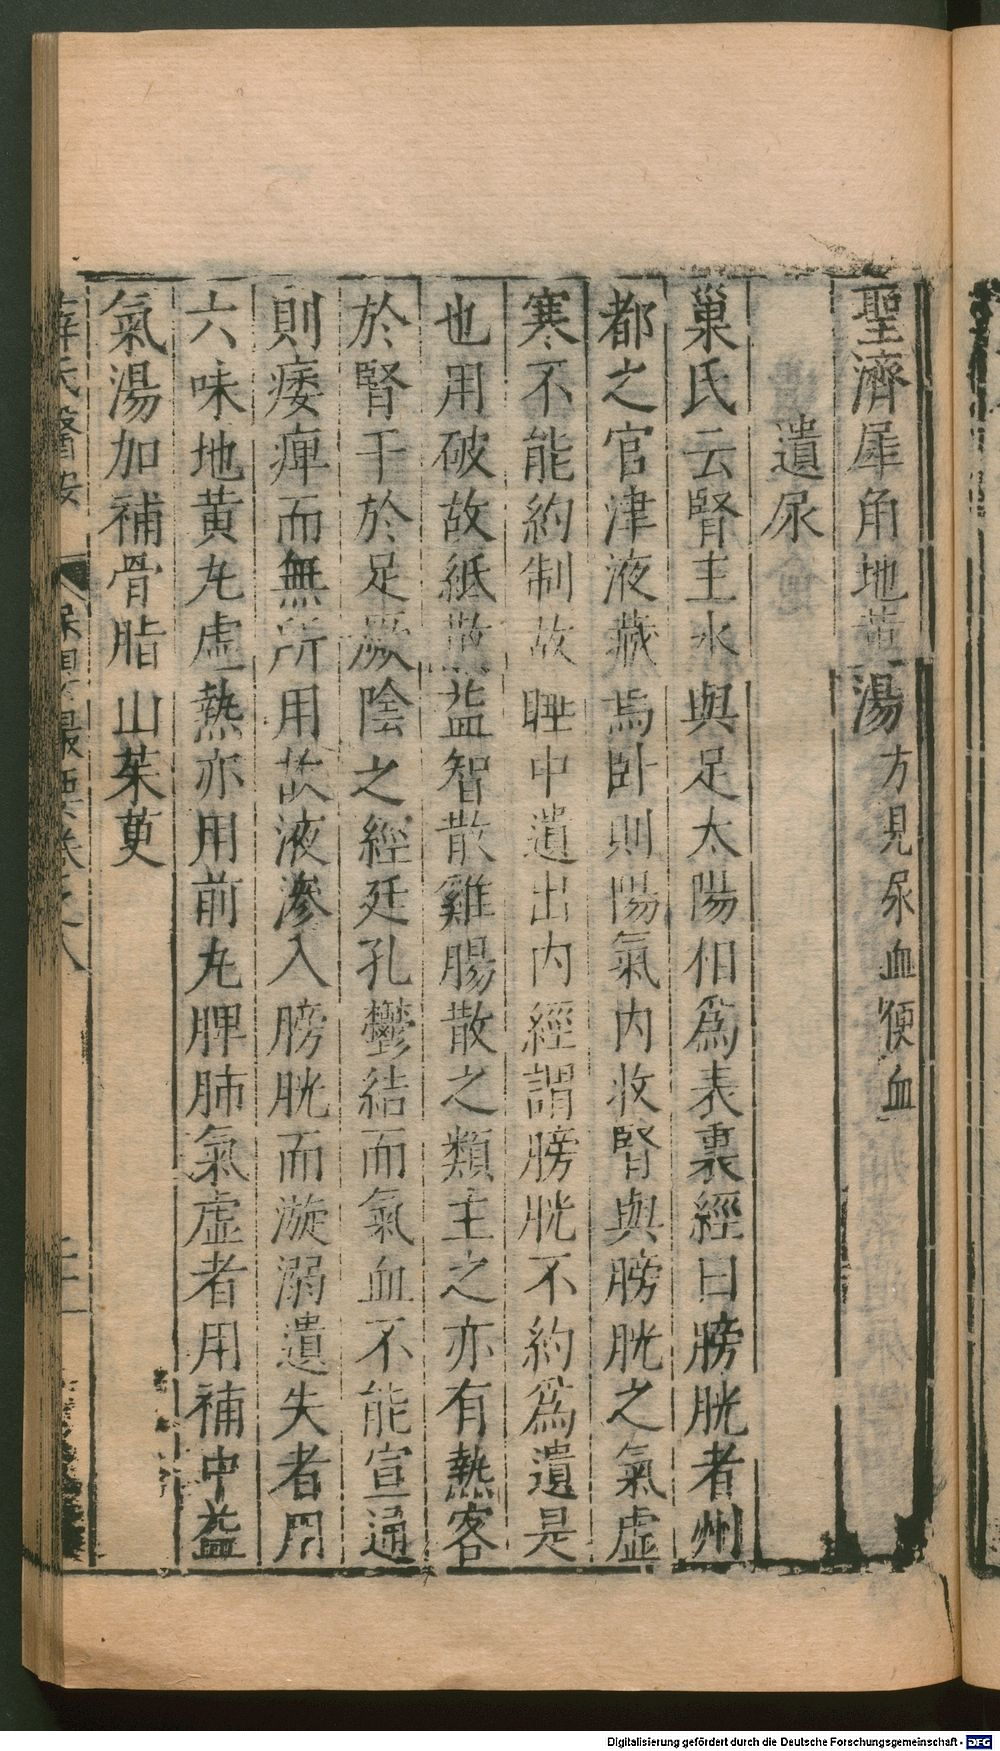 聖濟犀角地黃湯方見尿血便血
遺尿
巢氏云腎主水與足太陽相爲表裏經曰膀胱者州
都之官津液藏焉卧則陽氣內收腎與膀胱之氣虛
寒不能約制故睡中遺出內經謂膀胱不約爲遺是
也用破故紙散益智散雞腸散之類主之亦有熱客
於腎干於足厥陰之經廷孔鬱結而氣血不能宣通
則痿痺而無所用故液滲入膀胱而漩溺遺失者用
六味地黄丸虛熱亦用前丸脾肺氣虛者用補中益
氣湯加補骨脂山茱萸
薛氏醫按
保嬰撮要卷之八
Digitalisierung gefördert durch die Deutsche Forschungsgemeinschaft - DFG